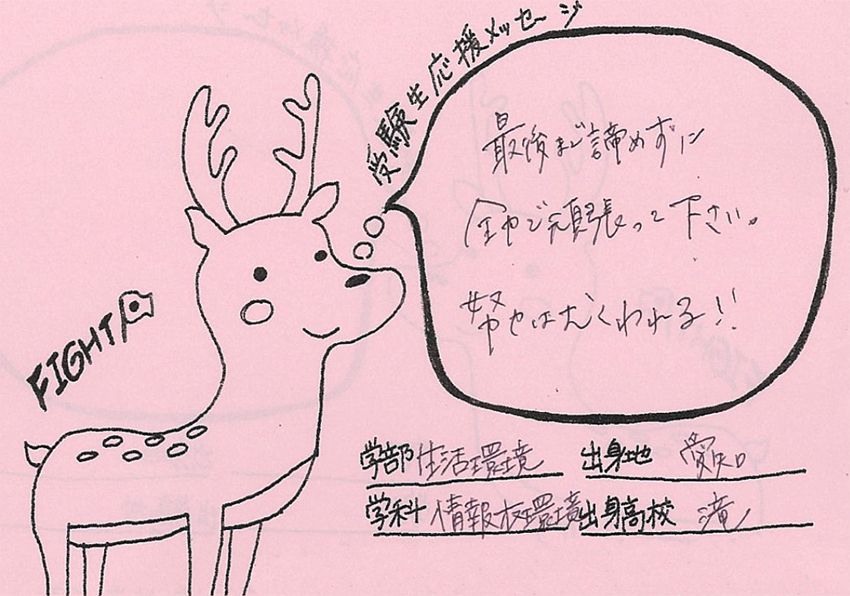 受験生応援メッセージ
最後まで諦めずに
全力で頑張って下さい。
努力はむくわれる!!
FIGHT!
学部 生活環境
出身地 愛知
学科 情報衣環境
出身高校 滝